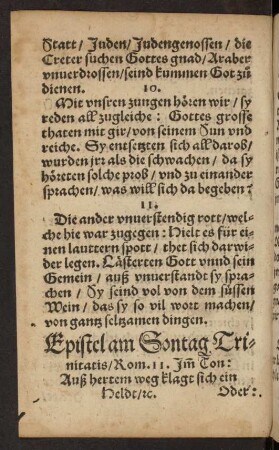 Statt / Juden / Judengenossen / die
Creter suchen Gottes gnad / Araber
vnuerdrossen / seind kummen Got zů
dienen. 10.
Mit vnsren zungen hören wir / sy
reden all zugleiche : Gottes grosse
thaten mit gir / von seinem Sun vnd
reiche. Sy entsetzten sich all darob /
wurden jr als die schwachen / da sy
höreten solche prob / vnd zu einander
sprachen / was will sich da begeben ?
11.
Die ander vnuerstendig rott / wel-
che hie war zugegen : Hielt es für ei-
nen lauttern spott / thet sich darwi-
der legen. Lästerten Gott vnnd sein
Gemein / auß vnuerstandt sy spra-
chen / Sy seind vol von dem süssen
Wein / das sy so vil wort machen /
von gantz seltzamen dingen.
Epistel am Sontag Tri-
nitatis / Rom. 11. Jm̃ Ton :
Auß hertem weg klagt sich ein
Heldt / ꝛc. Oder :